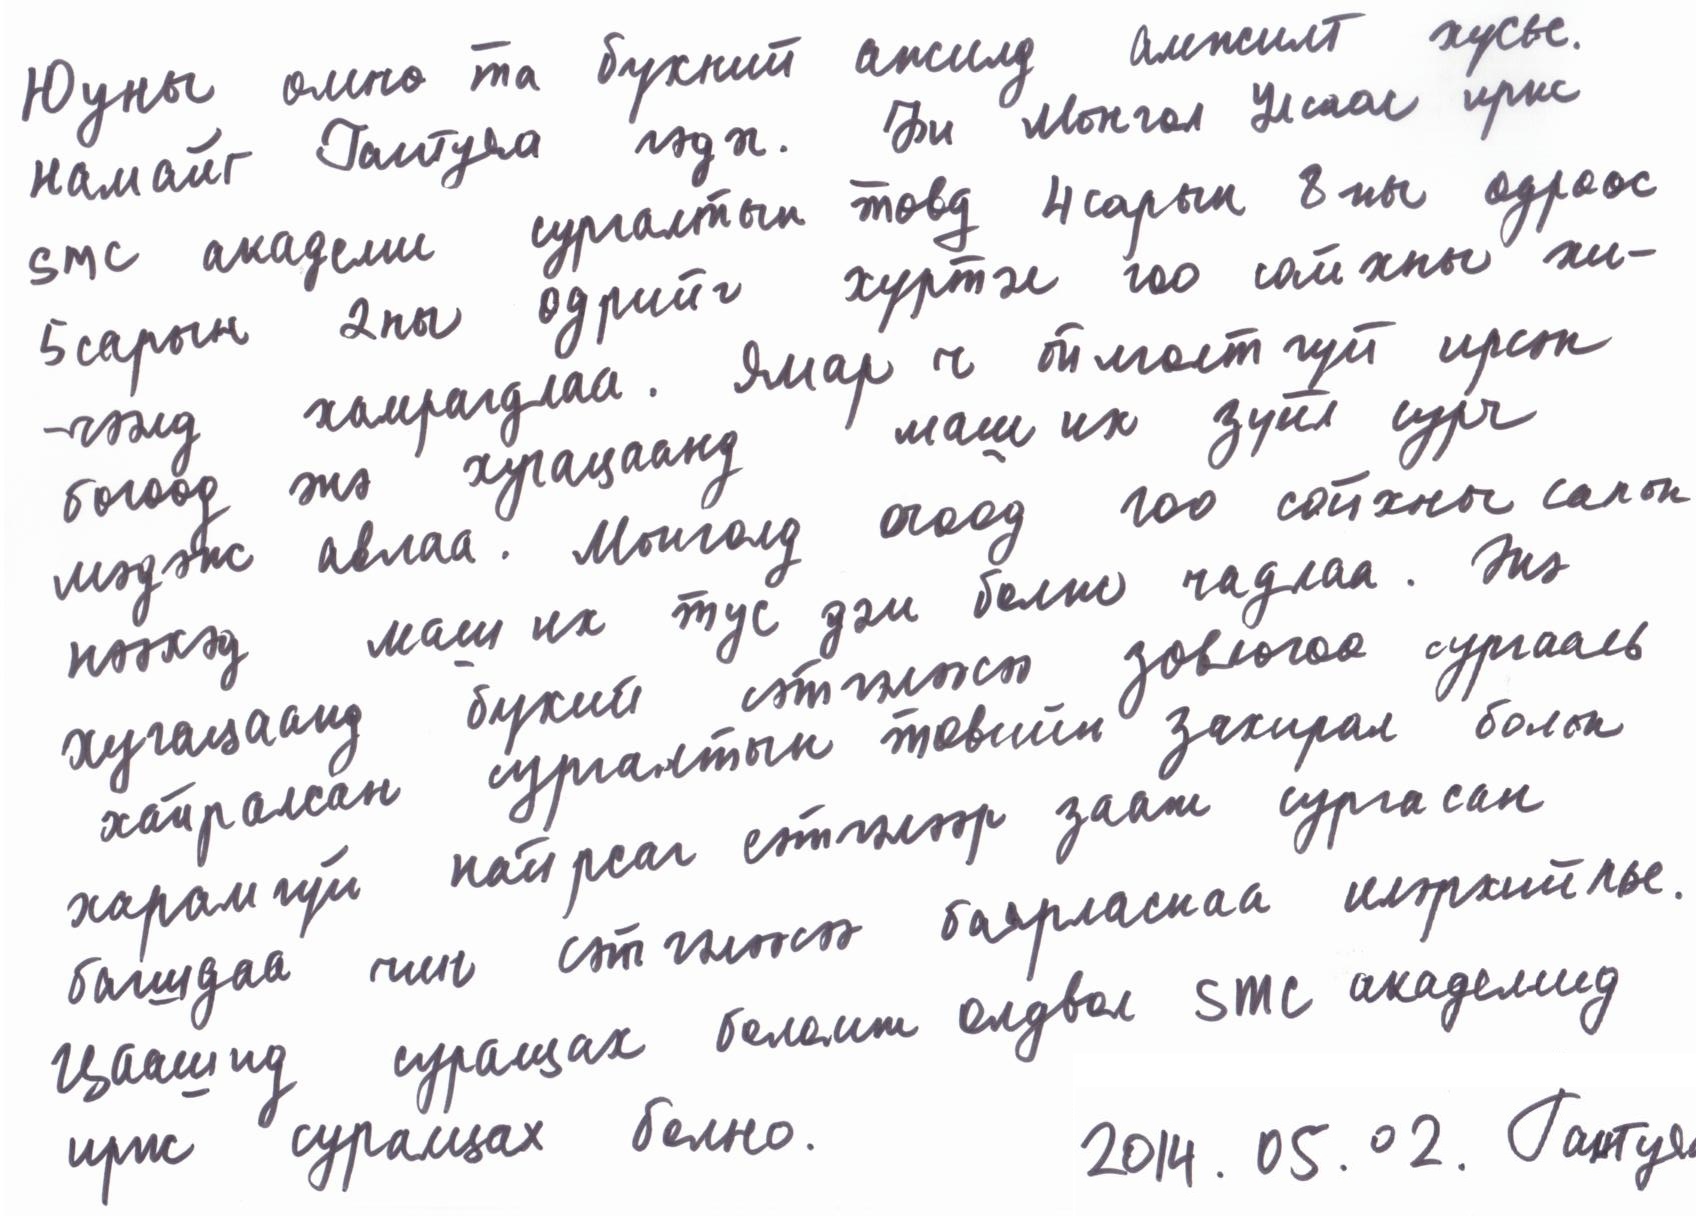 Юуны омно та бухний ажилд амжилт хусье.
намайг Гантуяа гэдэг. Би Монгол Улсаас ирж
SMC академи сургалтын товд 4 сарын 8-ны одроос
5 сарын 2ны одрийг хуртэл гоо сайхны хи-
-чээлд хамрагдлаа. Ямар ч ойлголтгуй ирсэн
богоод энэ хугацаанд маш их зуйл сурч
мэдэж авлаа. Монголд очоод гоо сайхны салон
нээхэд маш их тус дэм болж чадлаа. Энэ
хугацаанд бухий сэтгэлээсээ зовлогоо сургааль
хайралсан сургалтын товийн захирал болон
харамгуй найрсаг сэтгэлээр зааж сургасан
багшдаа чин сэтгэлээсээ баярласнаа илэрхийлье.
Цаашид суралцах боломж олдвол SMC академид
ирж суралцах болно. 2014.05.02. Гантуяа